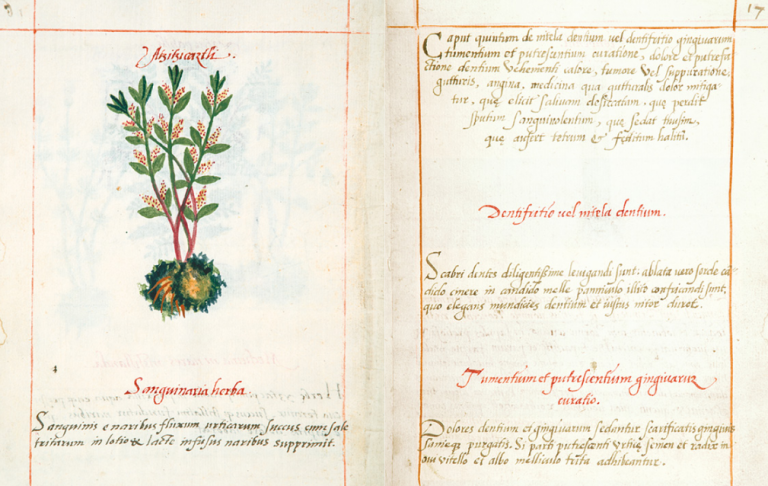 Atzitzicaztli.
Sanguinaria herba.
Sanguinis e naribus fluxum urticarum succus cum sale
tritarum in lotio & lacte infusus naribus supprimit.
17
Caput quintum de mirla dentium vel dentifritio gingivarum
tumentium et putrescentium curatione, dolore et putrefa
ctione dentium vehementi calore, tumore vel suppuratione
gutturis, angina, medicina qua gutturalis dolor mitiga
tur, quę elicit salivam, quę perdit
sputum sanguinolentum, quę sedat tussim,
quę aufert tetrum & halitum.
Dentifritio vel mirla dentium.
Scabri dentes diligentissime levigandi sunt: ablata vero sorde can
dido cinere in candido melle panniculo illito confricandi sunt,
quo elegans mundicies dentium et nitor duret.
Tumentium et putrescentium gingivarum
curatio.
Dolores dentium et gingivarum sedantur scarificatis gingivis
sanieque purgatis. Si parti putrescenti urticę semen et radix in
ovi vitello et albo melliculo trita adhibeantur.